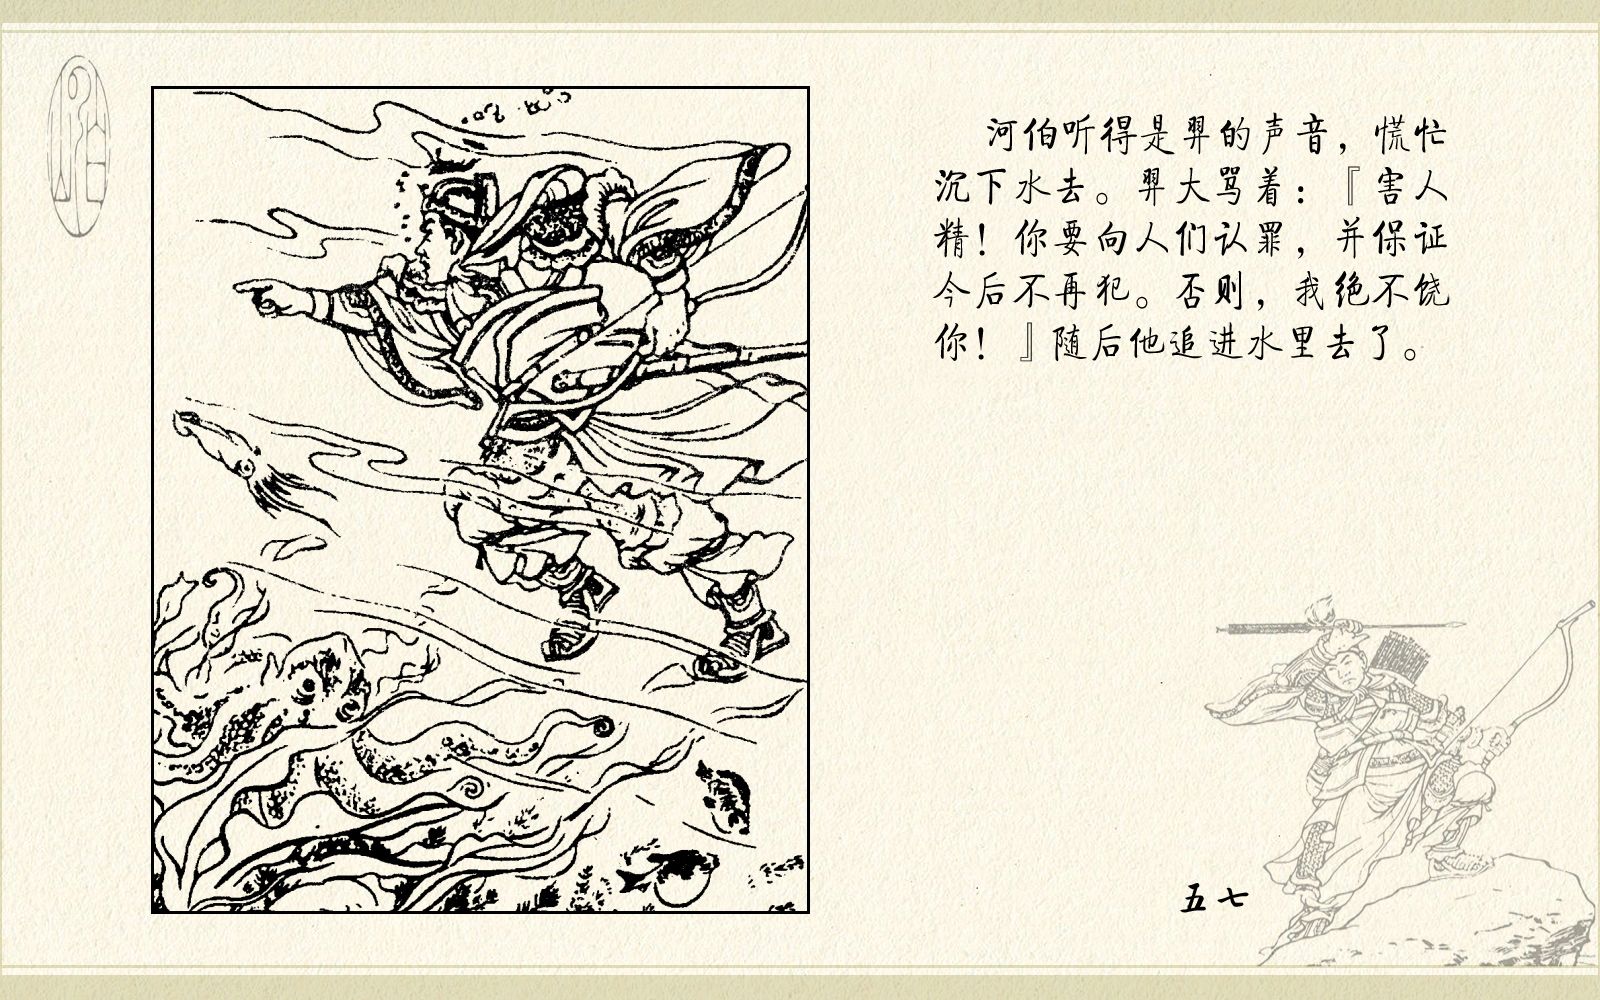 河伯听得是羿的声音，慌忙
沉下水去。羿大骂着：『害人
精！你要向人们认罪，并保证
今后不再犯。否则，我绝不饶
你！』随后他追进水里去了。
五七